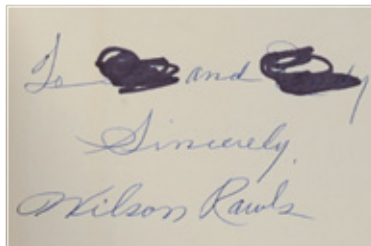 To and
Sincerely,
Wilson Rawls